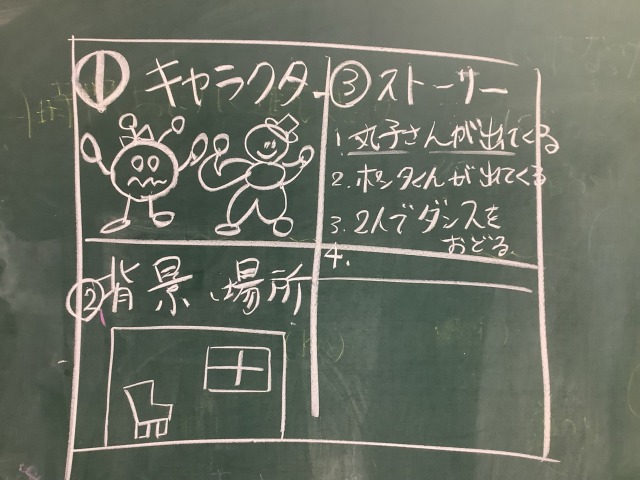 ① キャラクター
③ ストーリー
1. 丸子さんが出てくる
2. ポン太くんが出てくる
3. 2人でダンスを
おどる。
4.
② 背景、場所